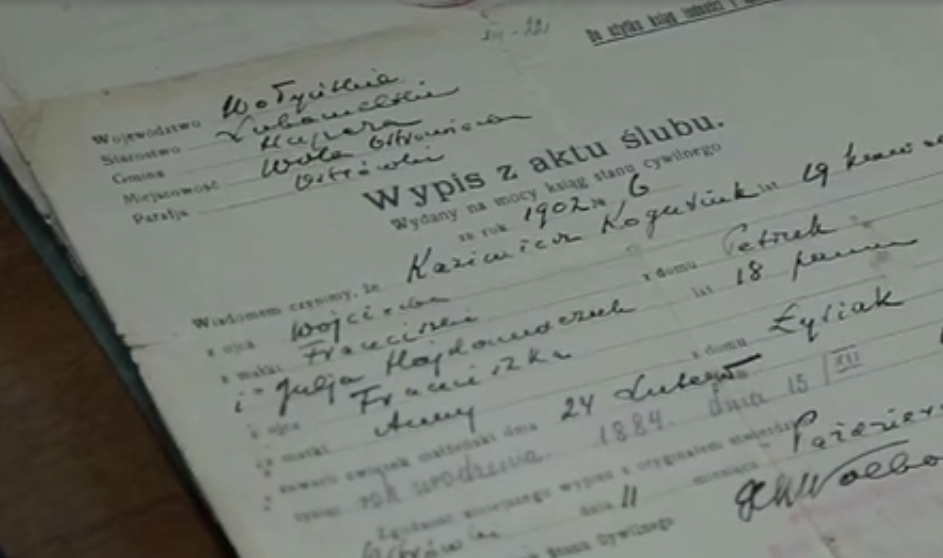 III - 221
Do użytku ksiąg ludności i
Województwo Wołyńskie
Starostwo Lubomelskie
Gmina Huszcza
Miejscowość Wola Ostrowiecka
Parafja Ostrówki
Wypis z aktu ślubu.
Wydany na mocy ksiąg stanu cywilnego
za rok 1902 № 6
Wiadomem czynimy, że Kazimierz Koguciuk lat 19 kawaler
z ojca Wojciecha
z matki Franciszki z domu Pietrzak
i Julja Hajdamaczuk lat 18 panna
z ojca Franciszka
z matki Anny z domu Łysiak
zawarli związek małżeński dnia 24 Lutego
rok urodzenia 1884. dnia 15/XII
Zgodność niniejszego wypisu z oryginałem stwierdza
Ostrówki dnia 11 miesiąca Paździer
Stanu Cywilnego